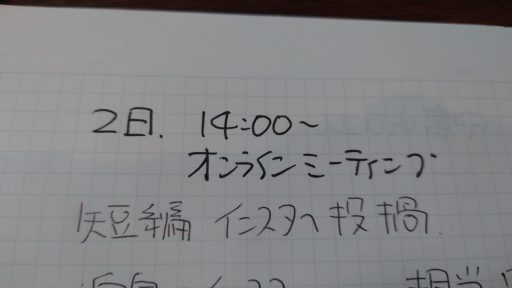 2日. 14:00～
オンラインミーティング
短編 インスタへ投稿.